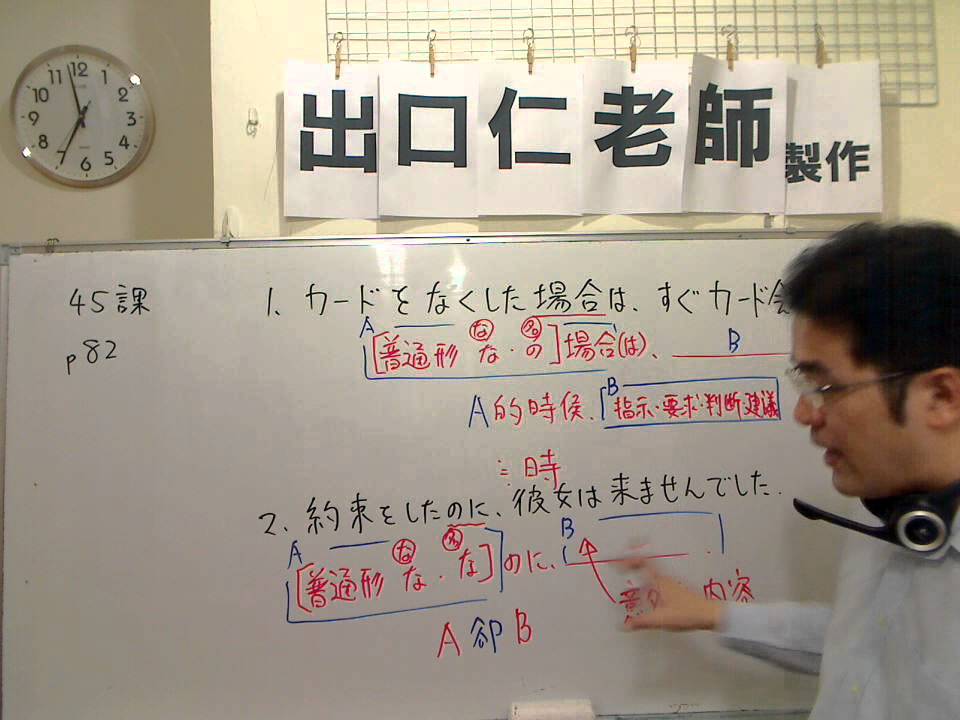 12 1 2 3 4 5 6 7 8 9 10 11
出口仁老師製作
45課
p82
1. カードをなくした場合は、すぐカード会
A な 名 B
[普通形 な・の]場合(は)、
A的時候、B 指示・要求・判断・建議
時
2. 約束をしたのに、彼女は来ませんでした.
A な 名 B
[普通形 な・な]のに、
内容
A 卻 B